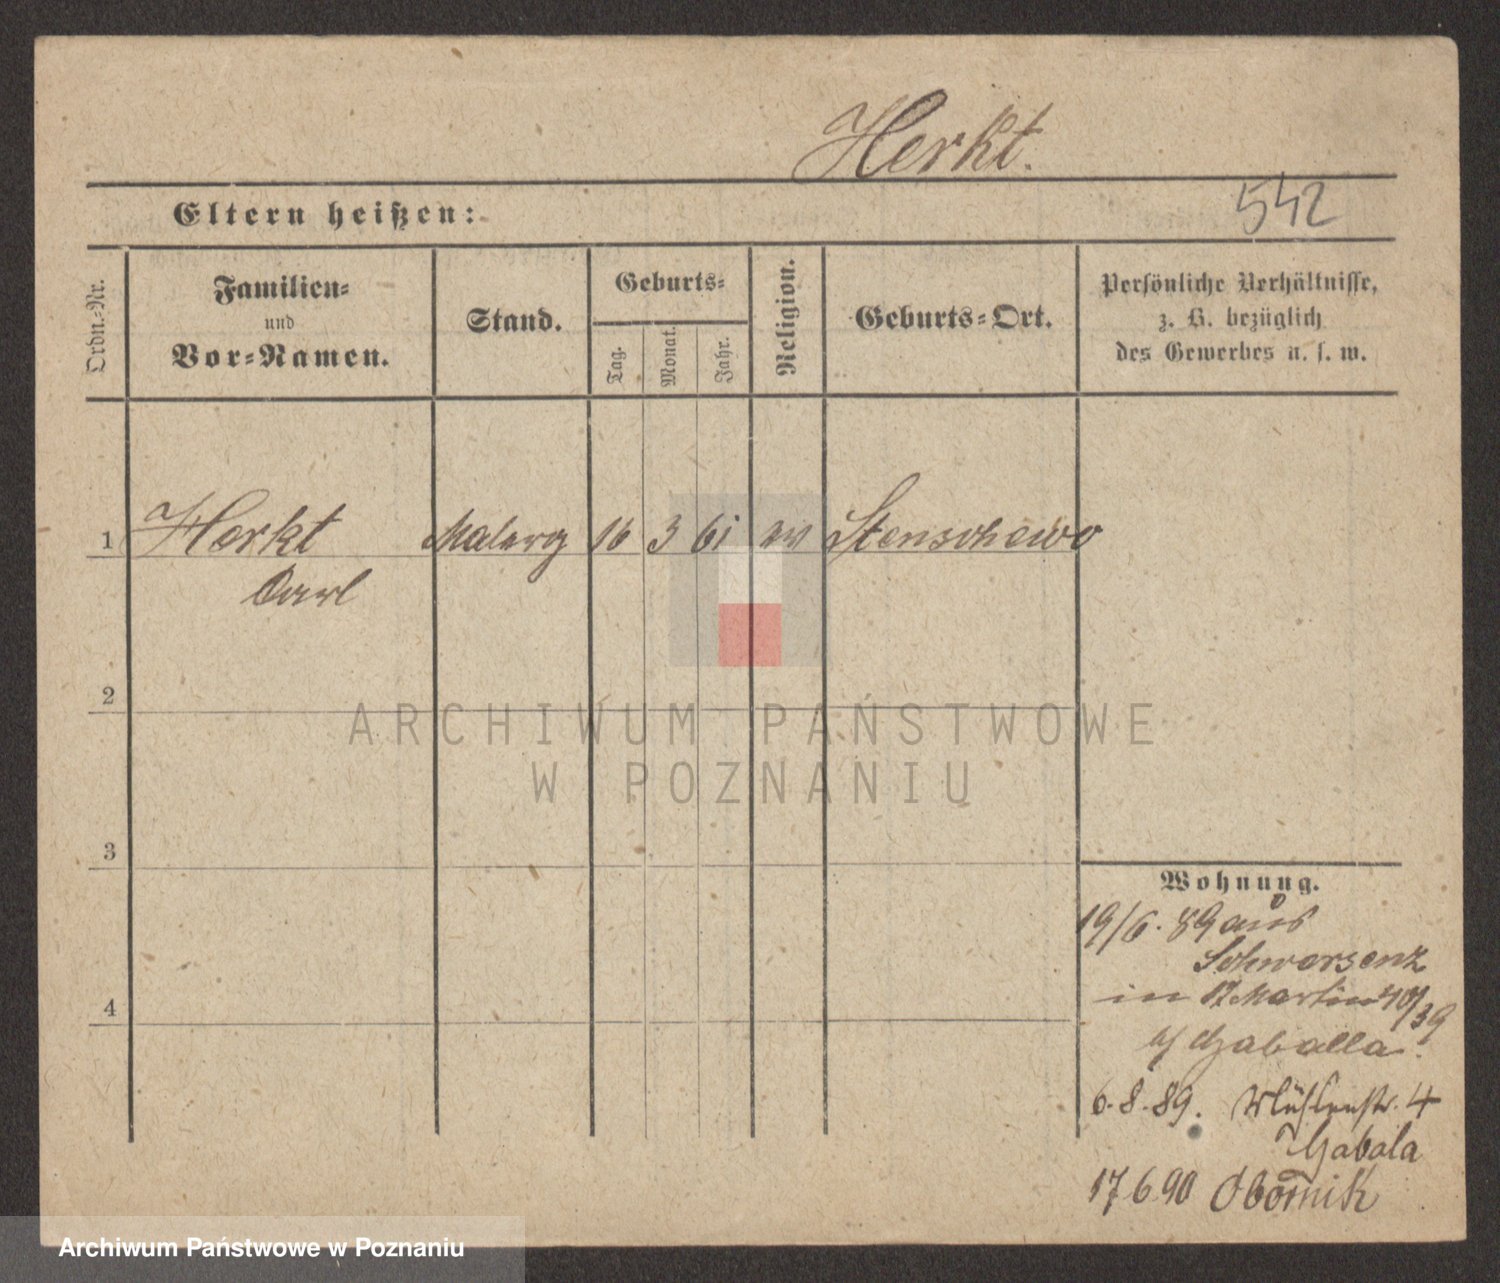 Herkt.
542
Eltern heißen:
Ordn.-Nr.
Familien-
und
Vor-Namen.
Stand.
Geburts-
Tag.
Monat.
Jahr.
Religion.
Geburts-Ort.
Persönliche Verhältnisse,
z. B. bezüglich
des Gewerbes u. s. w.
1 Herkt Malerg 16 3 61 Stenschewo
Carl
2
ARCHIWUM PAŃSTWOWE
W POZNANIU
3
Wohnung.
19/6. 89 aus
Schwersenz
in St Martin
6.8.89. Mühlenstr. 4
Gabala
4
17 6 90 Obornik
Archiwum Państwowe w Poznaniu